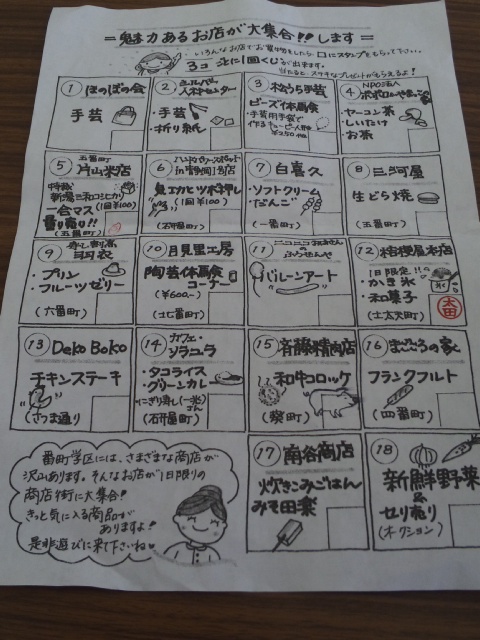 =魅力あるお店が大集合!!します=
いろんなお店でお買物をしたら、口にスタンプをもらって下さい。
3コごとに1回くじが出来ます。
当たると、ステキなプレゼントがもらえるよ!
① ほっぽの会
手芸
② シルバー人材センター
・手芸
・折り紙
③ おもう手芸
ビーズ体験
・手芸用手袋で
作るキューピー人形
¥250
④ NPO法人
ヤーコン茶
しいたけ
お茶
⑤ 五番町
片山米店
特撰
新潟三和コシヒカリ
一合マス(1回¥100)
量り売り!!
(五番町)
⑥
in 静岡
(1回¥100)
(石町屋町)
⑦ 白喜久
・ソフトクリーム
・だんご
(一番町)
⑧ 三河屋
生どら焼
(五番町)
⑨
・プリン
・フルーツゼリー
(六番町)
⑩ 月見里工房
陶芸体験
コーナー
(¥600-)
(七番町)
⑪
バルーンアート
⑫ 桔梗屋本店
1日限定!!
・かき氷
・和菓子
太田
⑬ Deko Boko
チキンステーキ
(さつま通り)
⑭ カフェ・
ソラユラ
・タコライス
・グリーンカレー
⑮ 斉藤精肉店
和牛コロッケ
(葵町)
⑯ まごころの家
フランクフルト
(四番町)
番町学区には、さまざまな商店が
沢山あります。そんなお店が1日限りの
商店街に大集合!
きっと気に入る商品が
ありますよ!
是非遊びに来て下さいね
⑰ 南谷商店
炊きこみごはん
みそ田楽
⑱
新鮮野菜
&
せり売り
(オークション)